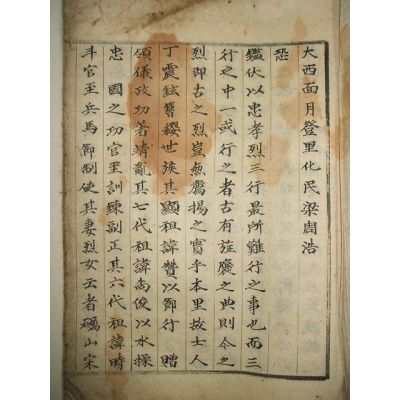 大西面月登里化民梁周浩
恐
鑑伏以忠孝烈三行最所難行之事也而三
行之中一或行之者古有旌褒之典則今之
烈即古之烈豈無薦揚之實乎本里故士人
丁震鉉簪纓世族其顯祖諱贊以御行贈
領儀政功著靖亂其七代祖諱尚俊以水操
忠國之功官至訓鍊副正其六代祖諱時
斗官至兵馬御制使其妻烈女云者礪山宋